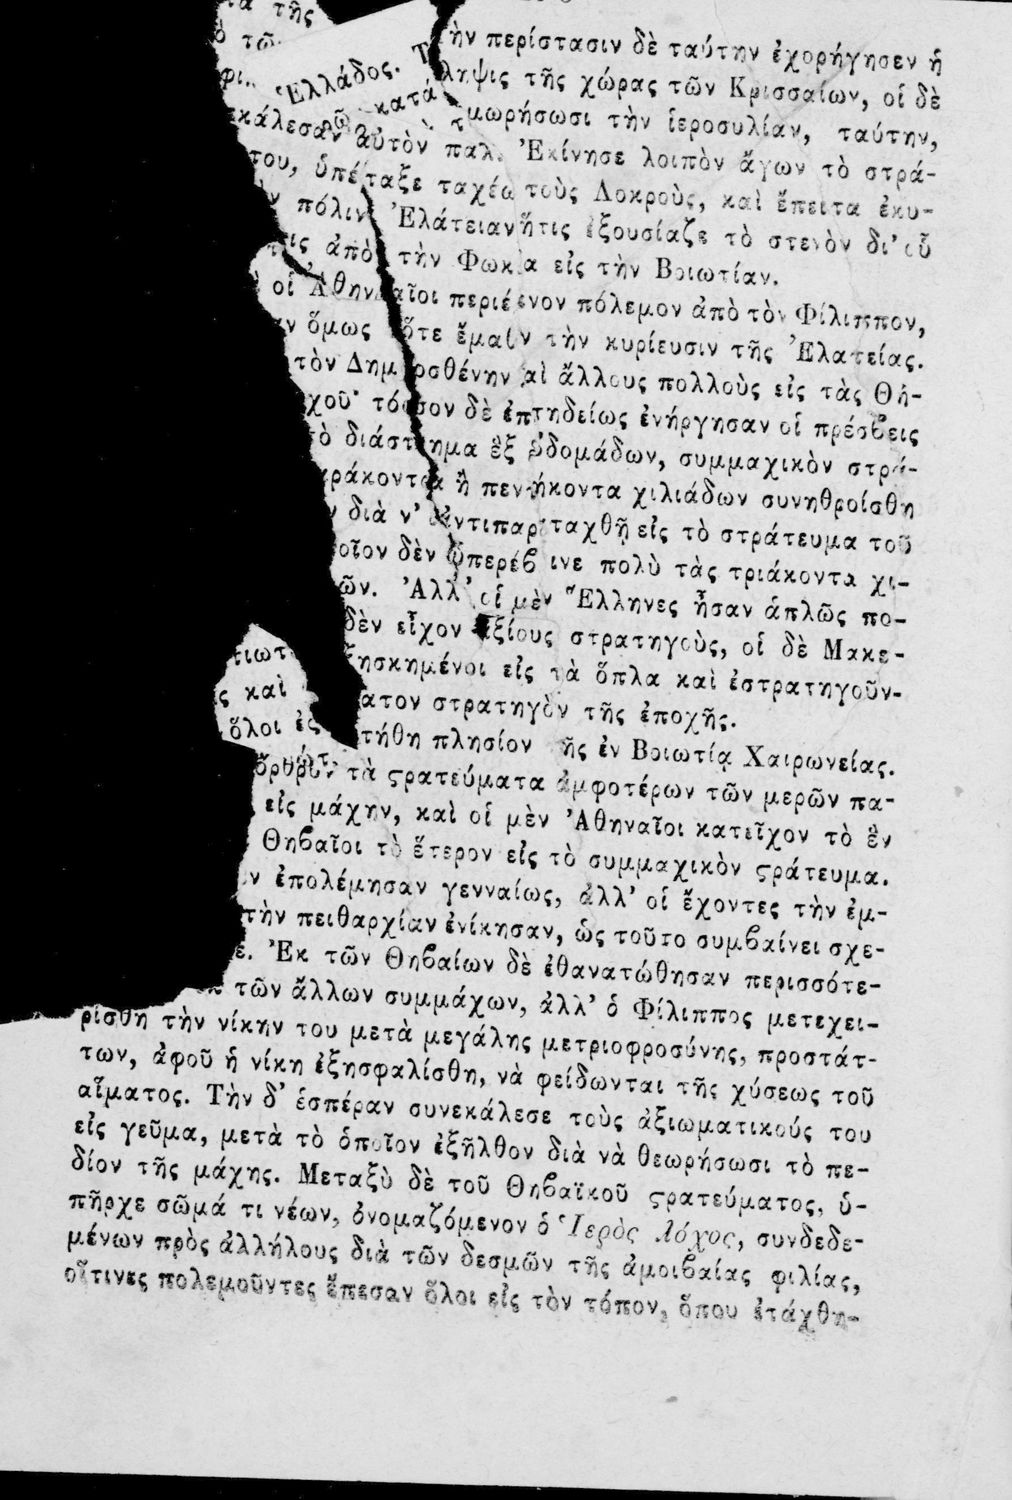 τῆς
Ἑλλάδος. Τὴν περίστασιν δὲ ταύτην ἐχορήγησεν ἡ
κατάληψις τῆς χώρας τῶν Κρισσαίων, οἱ δὲ
τιμωρήσωσι τὴν ἱεροσυλίαν, ταύτην,
ἐκάλεσαν αὐτὸν Ἐκίνησε λοιπὸν ἄγων τὸ στρά-
του, ὑπέταξε ταχέως τοὺς Λοκροὺς, καὶ ἔπειτα ἐκυ-
πόλιν Ἐλάτειαν ἥτις ἐξουσίαζε τὸ στενὸν δι' οὗ
τις ἀπὸ τὴν Φωκίδα εἰς τὴν Βοιωτίαν.
οἱ Ἀθηναῖοι περιέμενον πόλεμον ἀπὸ τὸν Φίλιππον,
ὅμως ὅτε ἔμαθον τὴν κυρίευσιν τῆς Ἐλατείας.
τὸν Δημοσθένην καὶ ἄλλους πολλοὺς εἰς τὰς Θή-
χοῦ· τόσον δὲ ἐπιτηδείως ἐνήργησαν οἱ πρέσβεις
διάστημα ἓξ ἑβδομάδων, συμμαχικὸν στρά-
ἢ πεντήκοντα χιλιάδων συνηθροίσθη
διὰ ν' ἀντιπαραταχθῇ εἰς τὸ στράτευμα τοῦ
δὲν ὑπερέβαινε πολὺ τὰς τριάκοντα χι-
Ἀλλ' οἱ μὲν Ἕλληνες ἦσαν ἁπλῶς πο-
δὲν εἶχον ἀξίους στρατηγοὺς, οἱ δὲ Μακε-
ἐξησκημένοι εἰς τὰ ὅπλα καὶ ἐστρατηγοῦν-
καὶ στρατηγὸν τῆς ἐποχῆς.
ὅλοι πλησίον τῆς ἐν Βοιωτίᾳ Χαιρωνείας.
τὰ ϛρατεύματα ἀμφοτέρων τῶν μερῶν πα-
εἰς μάχην, καὶ οἱ μὲν Ἀθηναῖοι κατεῖχον τὸ ἓν
Θηβαῖοι τὸ ἕτερον εἰς τὸ συμμαχικὸν ϛράτευμα.
ἐπολέμησαν γενναίως, ἀλλ' οἱ ἔχοντες τὴν ἐμ-
τὴν πειθαρχίαν ἐνίκησαν, ὡς τοῦτο συμβαίνει σχε-
Ἐκ τῶν Θηβαίων δὲ ἐθανατώθησαν περισσότε-
τῶν ἄλλων συμμάχων, ἀλλ' ὁ Φίλιππος μετεχει-
ρίσθη τὴν νίκην του μετὰ μεγάλης μετριοφροσύνης, προστάτ-
των, ἀφοῦ ἡ νίκη ἐξησφαλίσθη, νὰ φείδωνται τῆς χύσεως τοῦ
αἵματος. Τὴν δ' ἑσπέραν συνεκάλεσε τοὺς ἀξιωματικούς του
εἰς γεῦμα, μετὰ τὸ ὁποῖον ἐξῆλθον διὰ νὰ θεωρήσωσι τὸ πε-
δίον τῆς μάχης. Μεταξὺ δὲ τοῦ Θηβαϊκοῦ ϛρατεύματος, ὑ-
πῆρχε σῶμά τι νέων, ὀνομαζόμενον ὁ Ἱερὸς λόχος, συνδεδε-
μένων πρὸς ἀλλήλους διὰ τῶν δεσμῶν τῆς ἀμοιβαίας φιλίας,
οἵτινες πολεμοῦντες ἔπεσαν ὅλοι εἰς τὸν τόπον, ὅπου ἐτάχθη-